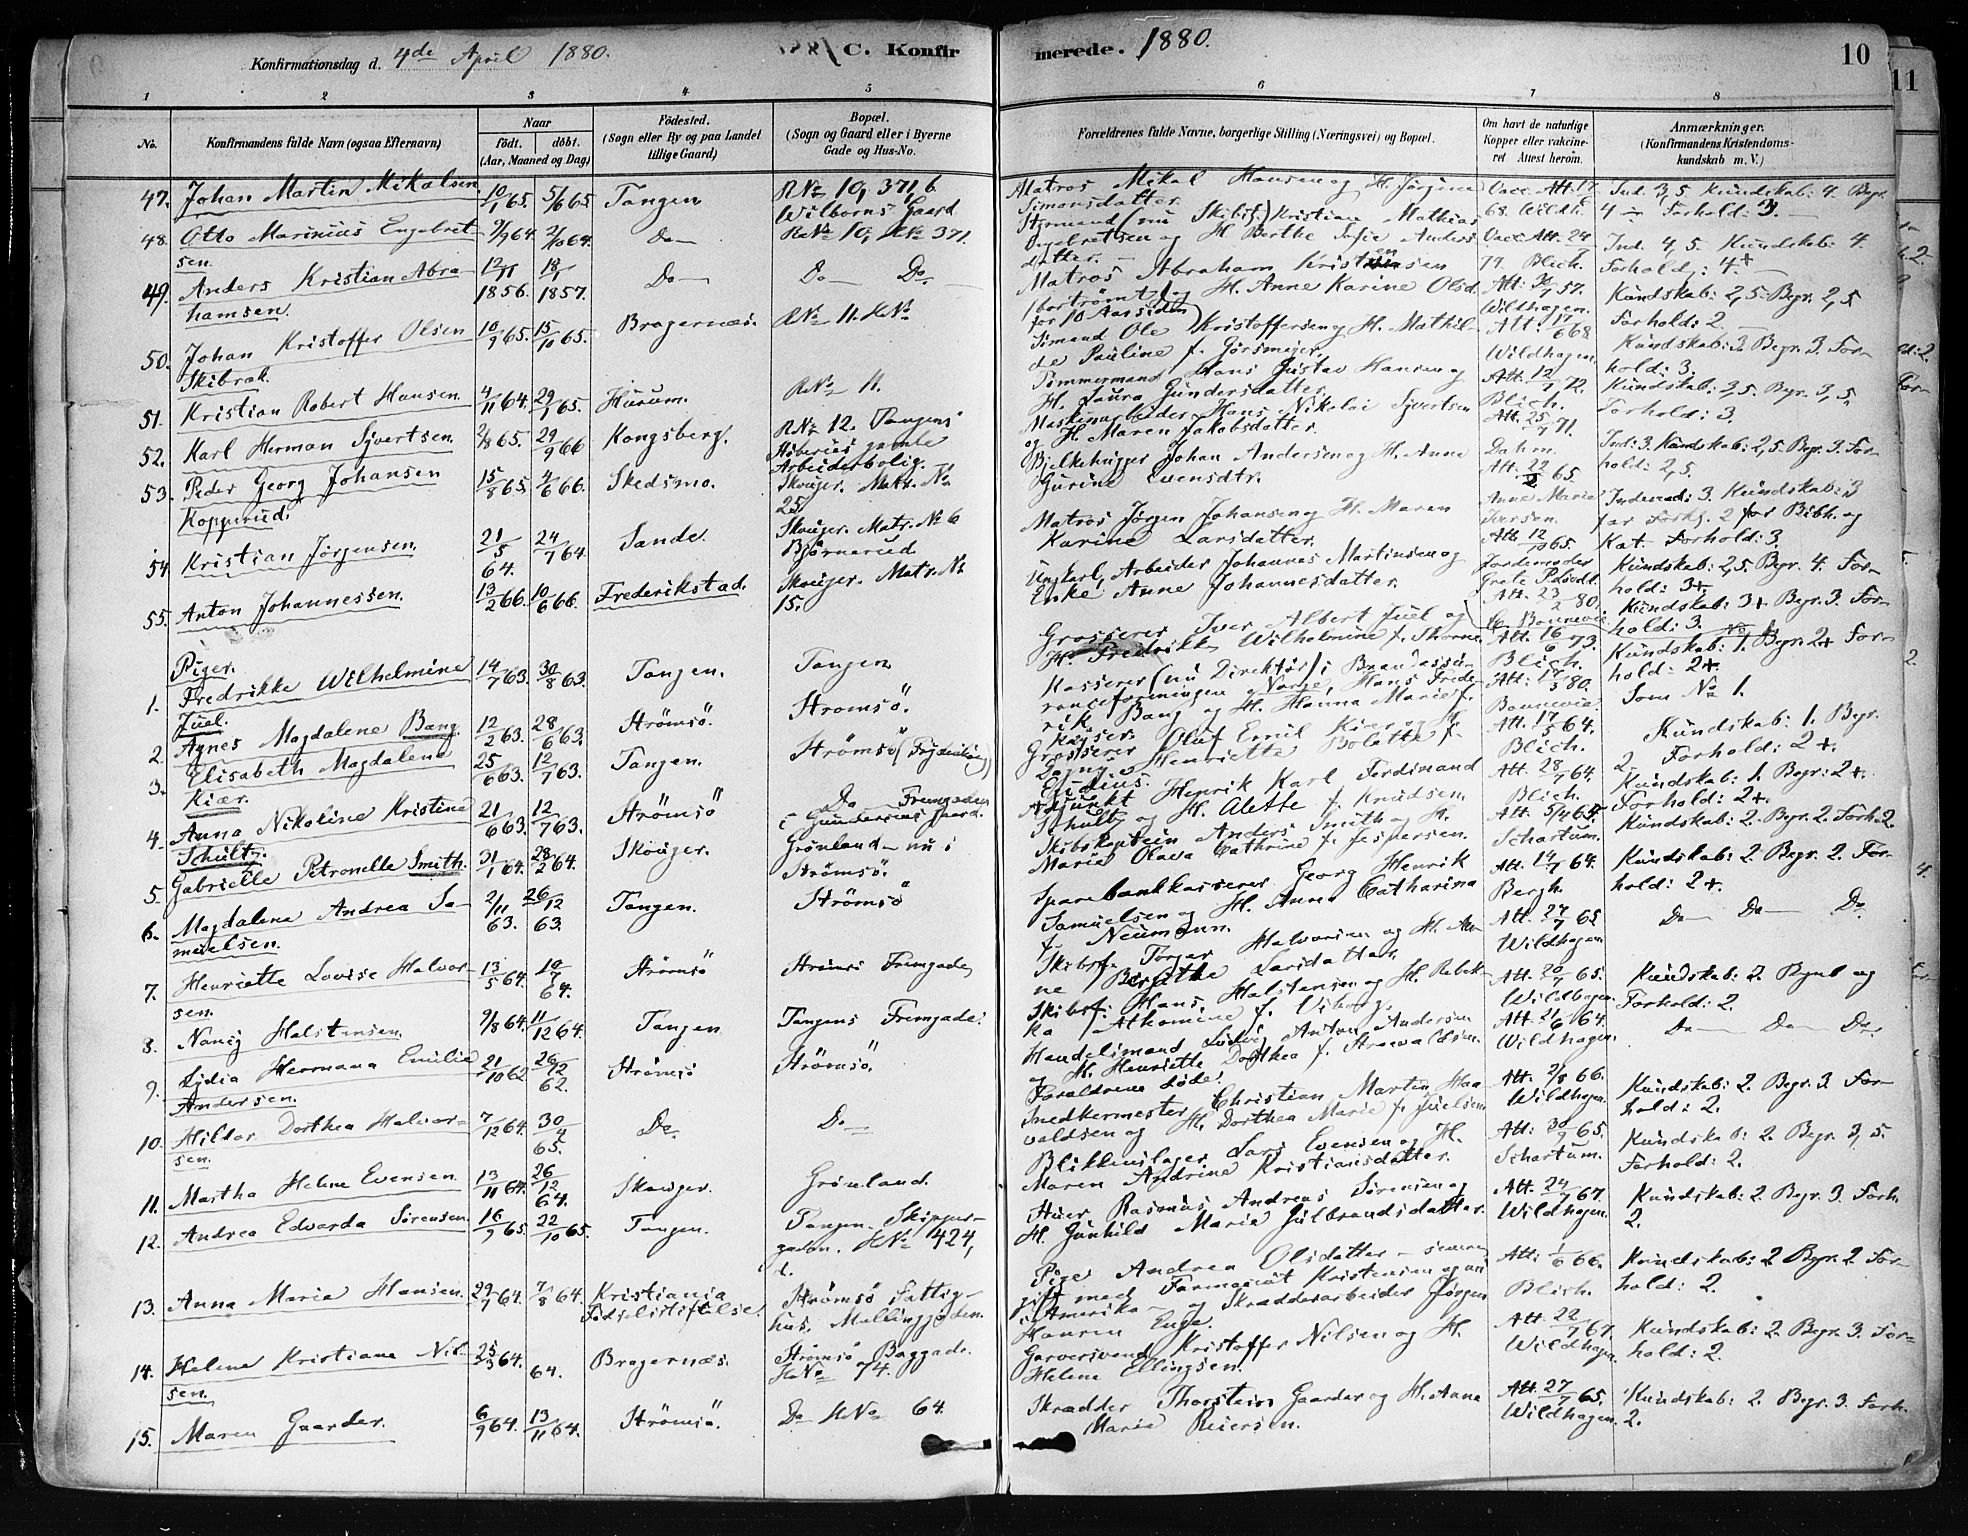 Konfirmationsdag d. 4de April 1880.
C. Konfir
merede. 1880.
10
11
1 2 3 4 5 6 7 8
No.
Konfirmandens fulde Navn (ogsaa Efternavn)
Naar
födt. döbt.
(Aar, Maaned og Dag)
Födested.
(Sogn eller By og paa Landet
tillige Gaard)
Bopæl.
(Sogn og Gaard eller i Byerne
Gade og Hus-No.
Forældrenes fulde Navne, borgerlige Stilling (Næringsvei) og Bopæl.
Om havt de naturlige
Kopper eller vakcine-
ret Attest herom.
Anmærkninger.
(Konfirmandens Kristendoms-
kundskab m. V.)
47. Johan Martin Mikalsen 10/1 65. 5/6 65 Tangen RNo 10, 371, b
Wilborns Gaard
Matros Mikal Hansen og H. Jørgine
Simonsdatter.
Vacc. Att. 17
68. Wildh.
Ind. 3,5 Kundskab: 4. Begr.
4 Forhold: 3.
48. Otto Marinius Engebret
sen. 9/9 64. 2/10 64. Do RNo 10, HNo 371.
Styrmand (nu Skibsf.) Kristian Mathias
Engebretsen og H. Berthe Sofie Anders
datter.
Vacc. Att. 24
79. Blich.
Ind. 4,5. Kundskab: 4.
Forhold: 4+
49. Anders Kristian Abra
hamsen. 12/11 1856. 18/1 1857. Do Do Do
Matros Abraham Kristensen
(bortrømt for 10 Aar siden) og H. Anne Karine Olsd.
Att: 57.
Wildhagen.
Kundskab: 2,5 Begr. 2,5
Forhold: 2.
50. Johan Kristoffer Olsen
Skibrak. 10/9 65. 15/10 65. Bragernæs. RNo 11. HNo
Sömand Ole Kristoffersen og H. Mathil-
de Pauline f. Jörsmeyer.
Att. 17/6 68.
Wildhagen.
Kundskab: 3. Begr. 3. For-
hold: 3.
51. Kristian Robert Hansen 4/11 64. 29/1 65. Hurum. RNo 11.
Tømmermand Hans Gustav Hansen og
H. Laura Gundersdatter.
Att. 12/7 72.
Blich.
Kundskab: 2,5. Begr. 3,5.
Forhold: 3.
52. Karl Herman Syvertsen. 2/8 65. 29/9 66 Kongsberg. RNo 12. Tangens
gamle
Arbeiderbolig.
Maskinarbeider Hans Nikolai Syvertsen
og H. Maren Jakobsdatter.
Att. 25/9 71.
Dahm.
Ind: 3. Kundskab: 2,5 Begr. 3. For-
hold: 2,5.
53. Peder Georg Johansen
Kopperud. 15/8 65. 4/6 66. Skedsmo. Skouger. Matr. No
25.
Bjelkehugger Johan Andersen og H. Anne
Gurine Evensdtr.
Att. 22 65.
Anne Marie
Iversen.
Indenad: 3. Kundskab: 3
for Forkl. 2 for Bibh. og
Kat. Forhold: 3
54 Kristian Jørgensen. 21/5 64. 24/7 64. Sande. Skouger. Matr. No 6
Bjørnerud
Matros Jørgen Johansen og H. Maren
Karine Larsdatter.
Att. 12 65.
Jordemoder
Grete
Kundskab: 2,5. Begr. 4. For-
hold: 3+.
55. Anton Johannessen. 13/2 66. 10/6 66. Frederikstad. Skouger. Matr. No
15.
Ungkarl, Arbeider Johannes Martinsen og
Enke Anne Johannesdatter.
Att. 23/2 80.
Bonnevie.
Kundskab: 3+ Begr. 3. For-
hold: 3.
Piger.
1. Fredrikke Wilhelmine
Juel. 14/7 63. 30/8 63. Tangen. Tangen
Grosserer Iver Albert Juel og
H. Fredrikke Wilhelmine f. Thorne
Att. 16/6 73.
Blich.
Kundskab: 1. Begr: 2+ For-
hold: 2+.
2. Agnes Magdalene Bang 12/2 63. 28/6 63. Strømsö. Strømsö.
Kasserer (nu Direktør) i Brandassu-
ranceforeningen Norge, Hans Frede-
rik Bang og H. Hanna Marie f.
Kayser.
Att: 80.
Bonnevie.
Som No 1.
3. Elisabeth Magdalene
Kiær. 25/6 63. 12/7 63. Tangen. Strømsö
Grosserer Oluf Emil Kiær og H.
Dagny Henriette Bolette f.
Att. 17/5 64.
Blich.
Kundskab: 1. Begr.
2. Forhold: 2+.
4. Anna Nikoline Kristine
Schultz. 21/6 63. 12/7 63. Strømsö Do Fremgaden
i Gundersens Gaard.
Adjunkt Henrik Karl Ferdinand
Schultz og H. Alette f. Knudsen.
Att. 28/7 64.
Blich.
Kundskab: 1. Begr: 2+.
Forhold: 2+.
5. Gabrielle Petronelle Smith. 31/1 64. 28/2 64. Skouger. Grønland nu i
Strømsö.
Skibskaptein Anders Smith og H.
Marie Olava Cathrine f. Jespersen.
Att. 5/4 65.
Schartum.
Kundskab: 2. Begr. 2. Forh. 2.
6. Magdalene Andrea Sa-
muelsen. 2/11 63. 26/12 63. Tangen. Strømsö
Sparebankkasserer Georg Henrik
Samuelsen og H. Anna Catharina
f. Neumann.
Att. 14/7 64.
Bergh.
Kundskab: 2. Begr. 2. For-
hold: 2+.
7. Henriette Lovise Halvor-
sen. 13/5 64. 10/7 64. Strømsö Strömsö Fremgade
Skibsf. Torger Halvorsen og H. An-
ne Birgitte Larsdatter.
Att. 27/7 65.
Wildhagen.
Do Do Do
8. Nanny Halstensen. 9/8 64. 11/12 64. Tangen Tangens Fremgade.
Skibsf. Hans Halstensen og H. Rebek-
ka Athomine f. Viborg.
Att. 20/7 65.
Wildhagen
Kundskab: 2. Begreb og
Forhold: 2.
9. Lydia Hermana Emilie
Andersen. 21/10 62 26/12 62. Strömsö Strömsö.
Handelsmand Ludvig Anton Andersen
og H. Henriette Dorthea f.
Forældrene döde.
Att. 21/6 64.
Wildhagen.
Do Do Do
10. Hilda Dorthea Halvor-
sen. 7/12 64. 30/4 65. Do. Do
Snedkermester Christian Martin Haa
valdsen og H. Dorthea Marie f. Juelsen
Att. 2/8 66.
Wildhagen.
Kundskab: 2. Begr. 3. For-
hold: 2.
11. Martha Helene Evensen. 13/11 64. 26/12 64. Skouger. Grönland.
Blikkenslager Lars Evensen og H.
Maren Andrine Kristiansdatter.
Att: 30/9 65.
Schartum.
Kundskab: 2. Begr. 3,5.
Forhold: 2.
12. Andrea Edvarda Sørensen. 16/9 65. 22/10 65. Tangen. Tangen. Skipper-
gaden. HNo 424,
d.
Stuer Rasmus Andreas Sörensen og
H. Gunhild Marie Gulbrandsdatter.
Att. 24/7 67.
Wildhagen.
Kundskab: 2 Begr. 3. Forh.
2.
13. Anna Marie Hansen. 29/7 64. 7/8 64. Kristiania
Fødselsstiftelse. Strömsö Fattig-
hus. Mellemgaden.
Pige Andrea Olsdatter senere
gift med Farmand Kristensen og nu
i Amerika og Skrædderarbeider Jörgen
Hansen Enge.
Att: 1/6 66.
Blich.
Kundskab: 2 Begr. 2 For-
hold: 2.
14. Helene Kristiane Nil-
sen. 25/3 64. 64. Bragernæs. Strömsö Baggade.
HNo 74.
Garversvend Kristoffer Nilsen og H.
Helene Ellingsen.
Att. 22/7 67.
Wildhagen
Kundskab: 2. Begr. 3. For-
hold: 2.
15. Maren Gaarder. 6/9 64. 13/11 64. Strömsö. Do HNo 64.
Skrædder Thorstein Gaarder og H. Anna
Marie Reiersen.
Att. 27/7 65.
Wildhagen.
Kundskab: 2. Begr. 3. Forh.
2.